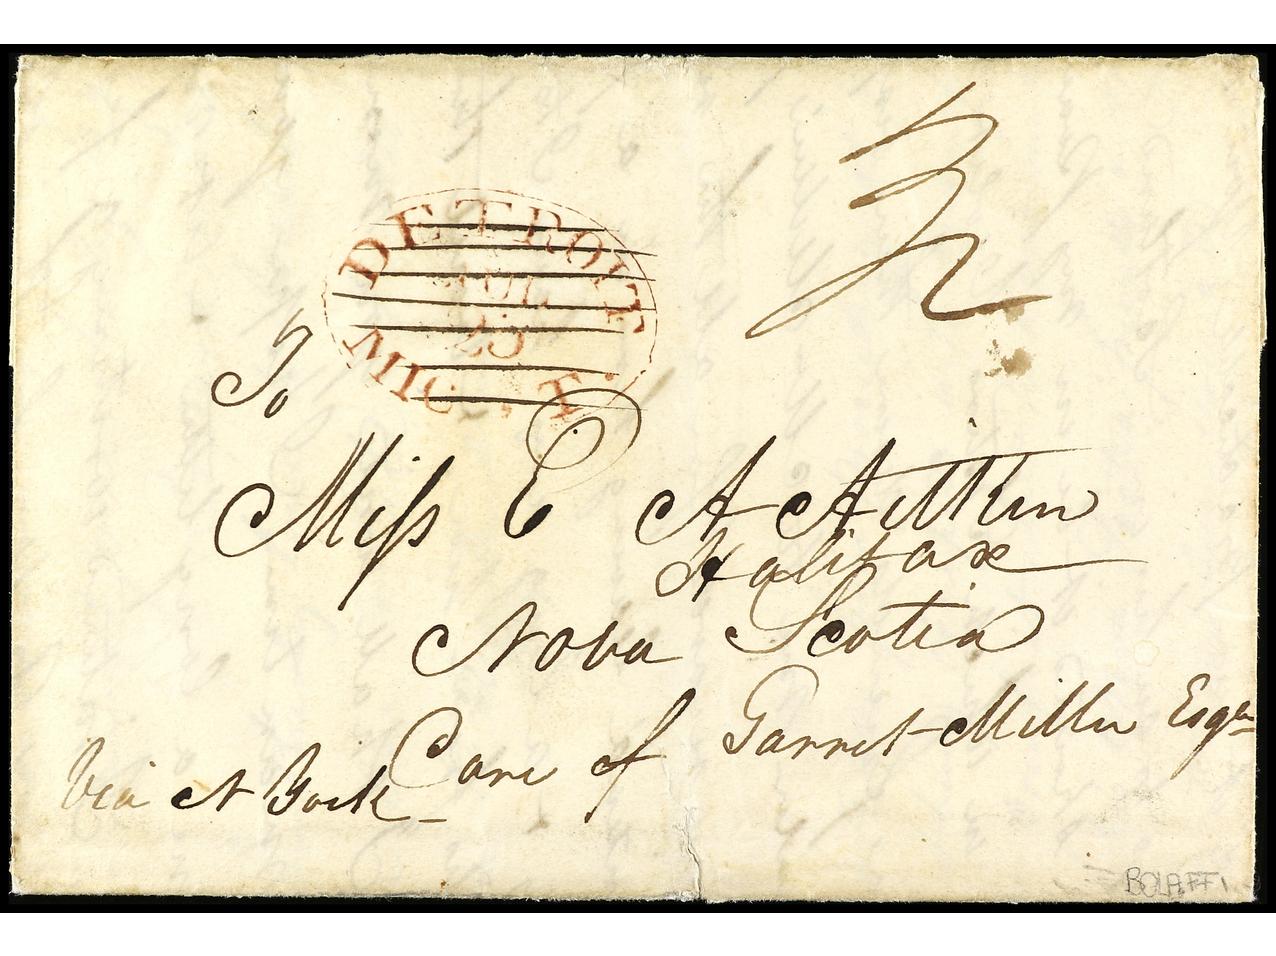 DETROIT
JUL
23
MIC T.
To
Miss E A Aitken
Halifax
Nova Scotia
Care of Garret Miller Esqr
Via N York
BOLAFFI